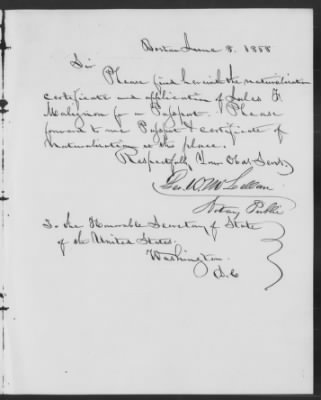 Boston June 8. 1888
Sir
Please find herewith the naturalization
certificate and application of Jules F.
for a Passport. Please
forward to me Passport & certificate of
Naturalization at the place.
Respectfully Your Obdt Servt
Geo. W. McLellan.
Notary Public
To the Honorable Secretary of State
of the United States.
Washington.
D.C